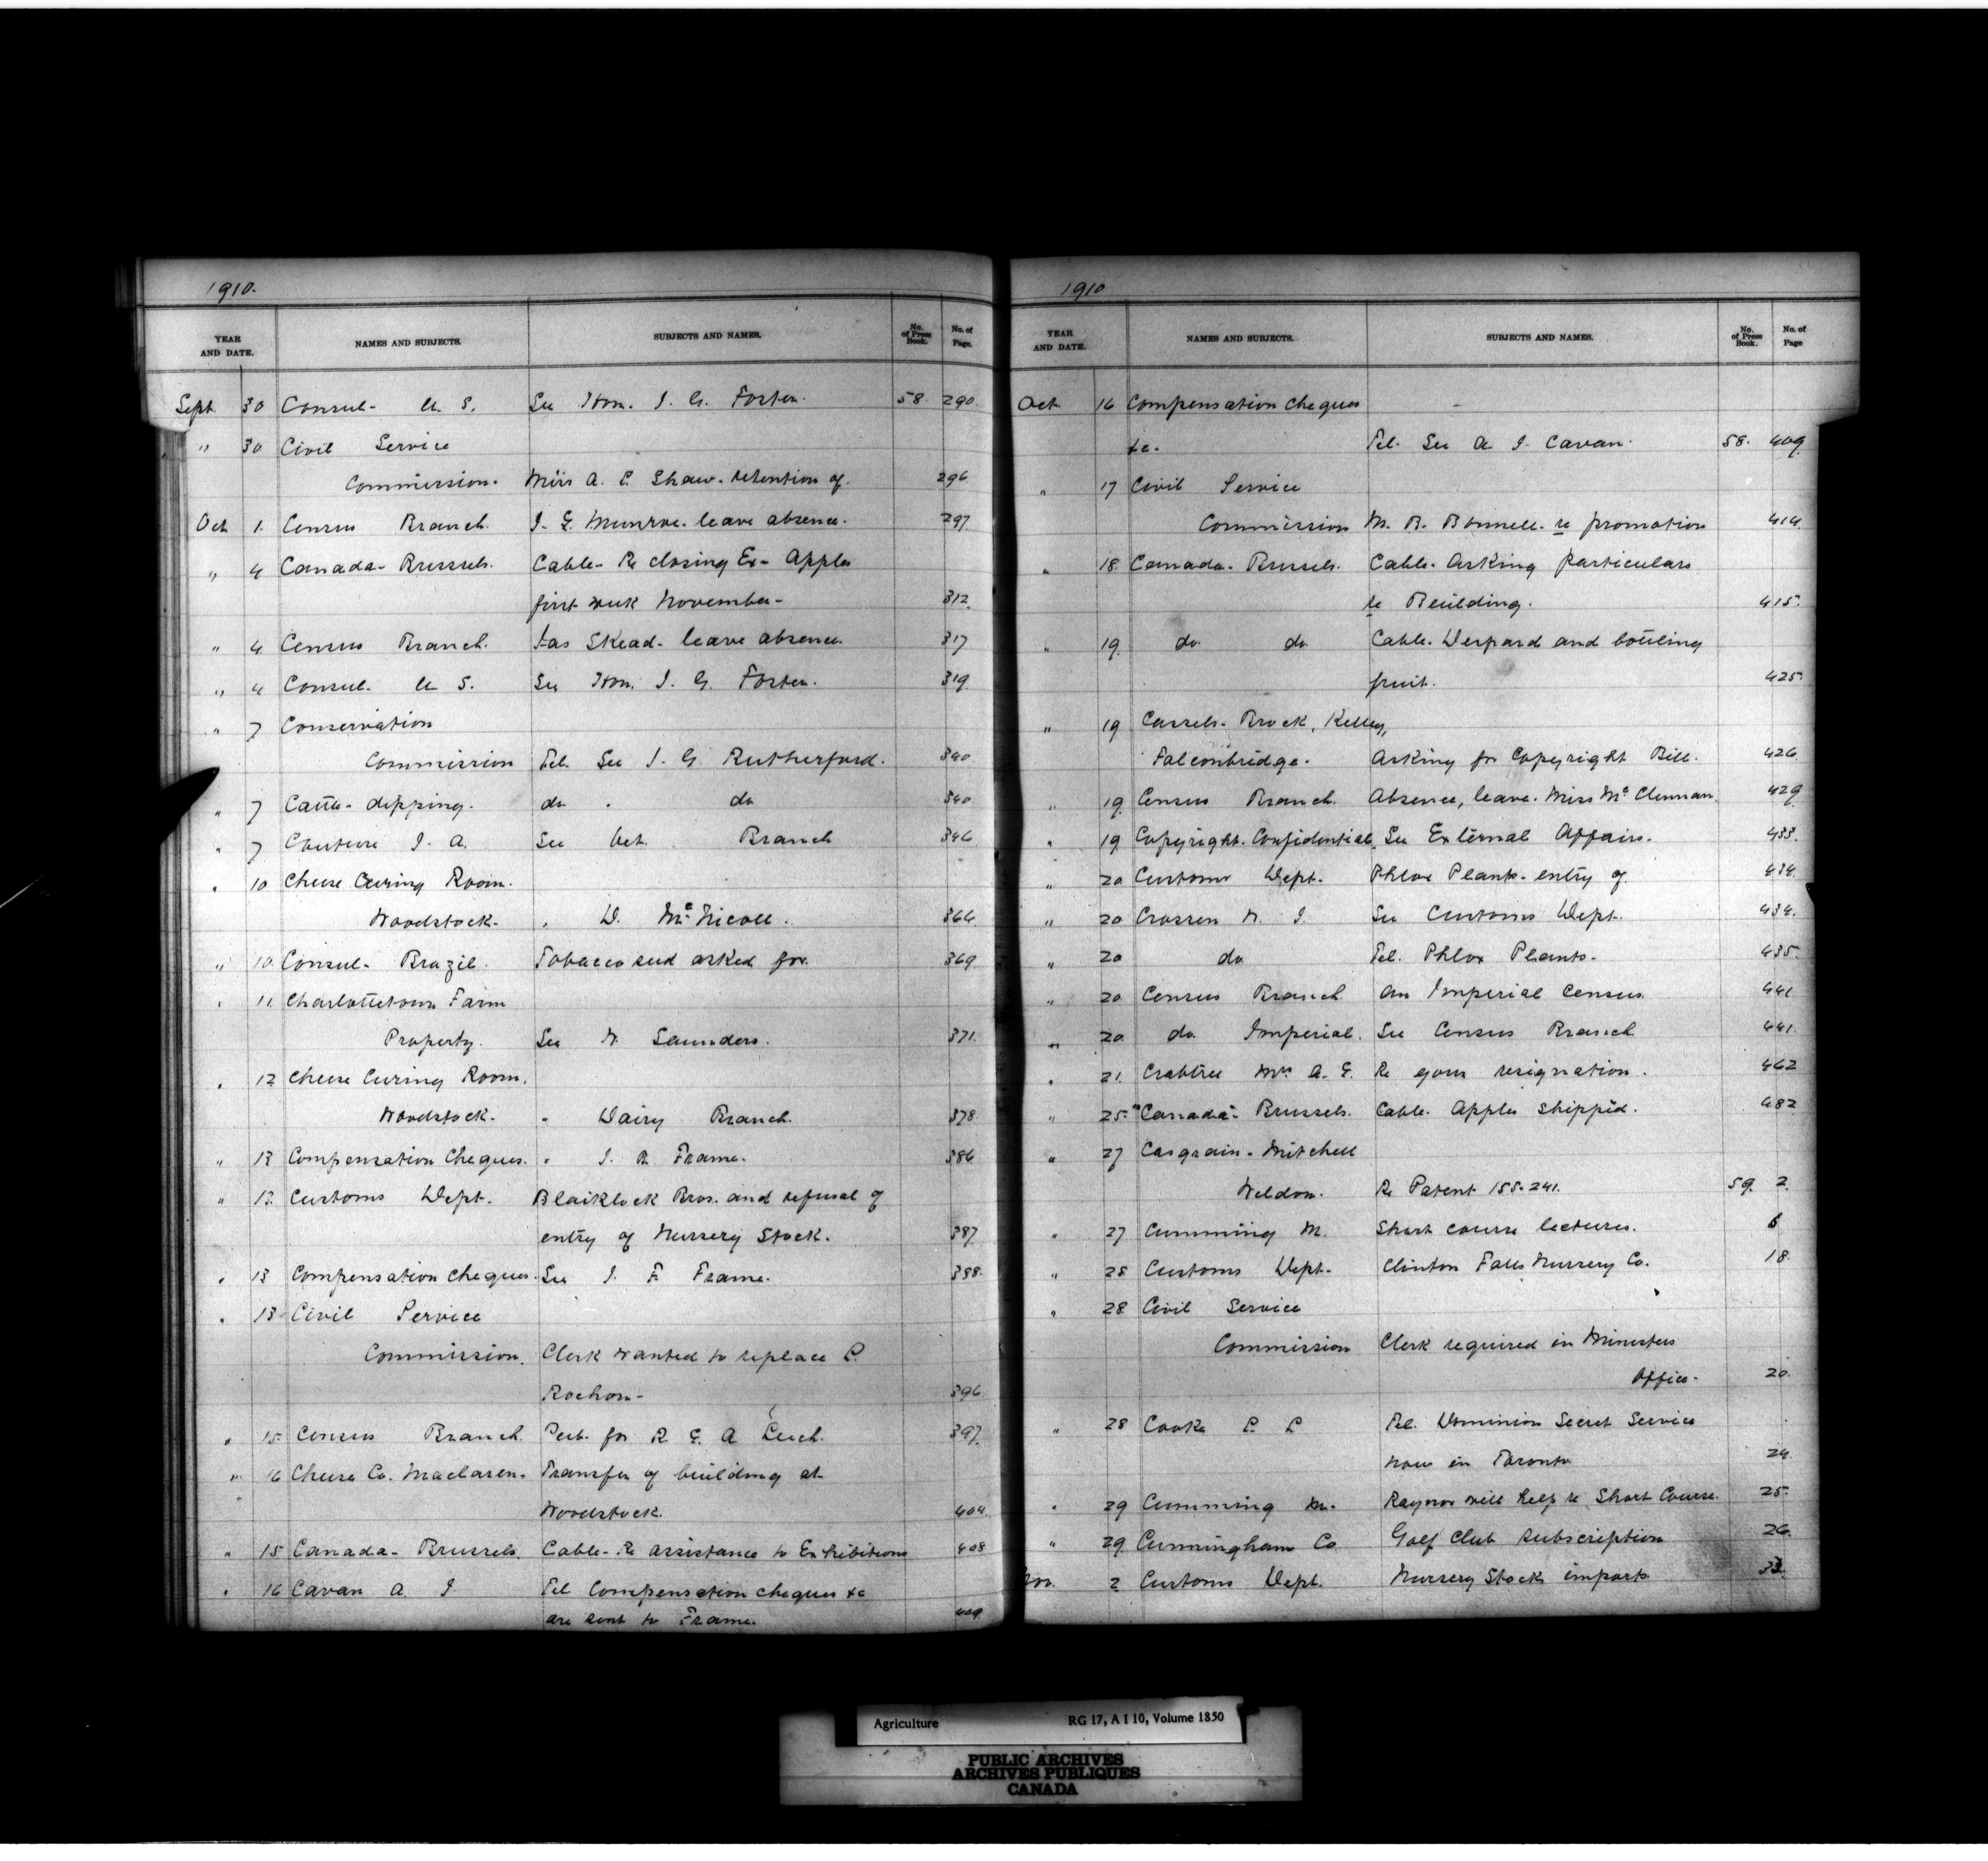 1910.
YEAR AND DATE. NAMES AND SUBJECTS. SUBJECTS AND NAMES. No. of Press Book. No. of Page.
Sept. 30 Consul- U. S. See Hon. J. G. Foster. 58. 290.
" 30 Civil Service
Commission. Miss A. E. Shaw- retention of. 296
Oct 1. Census Branch. J. G. Munroe- leave absence. 297.
" 4 Canada- Brussels. Cable- Re closing Ex- Apples
first week November- 312.
" 4. Census Branch. Jas Skead- leave absence. 317
" 4 Consul. U S. See Hon. J. G. Foster. 319.
" 7 Conservation
Commission Tel. See J. G. Rutherford. 340
" 7 Cattle- dipping. do " do 340.
" 7 Couture J. A. See Vet. Branch 346
" 10 Cheese Curing Room.
Woodstock- " D. McNicoll. 364.
" 10. Consul- Brazil. Tobacco seed asked for. 369.
" 11. Charlottetown Farm
Property. See W. Saunders. 371.
" 12 Cheese Curing Room.
Woodstock- " Dairy Branch. 378.
" 13 Compensation Cheques. " J. F. Frame. 386
" 13. Customs Dept. Blaiklock Bros. and refusal of
entry of Nursery Stock. 387
" 13 Compensation Cheques. See J. F. Frame. 388.
" 13 Civil Service
Commission. Clerk wanted to replace
Rochon- 396
" 15. Census Branch. for R. E. A Leach. 397.
" 16 Cheese Co. Maclaren. Transfer of building at
Woodstock. 404.
" 15 Canada- Brussels. Cable- Re assistance to Exhibitions 408
" 16 Cavan A. J. Tel Compensation cheques &c
are sent to Frame. 409
1910
YEAR AND DATE. NAMES AND SUBJECTS. SUBJECTS AND NAMES. No. of Press Book. No. of Page
Oct 16 Compensation Cheques
&c. Tel. See A. J. Cavan. 58. 409.
" 17 Civil Service
Commission M. B. Bonnell- re promotion 414.
" 18. Canada- Brussels. Cable- Asking particulars
re Building. 415.
" 19. do. do. Cable- and bottling
fruit. 425.
" 19 Cassels- Brock, Kelley,
Falconbridge. Asking for Copyright Bill. 426.
" 19. Census Branch. Absence, leave. Miss McClennan. 429
" 19 Copyright. Confidential. See External Affairs. 433.
" 20 Customs Dept. Phlox Plants- entry of. 434.
" 20 Crossen W. J. See Customs Dept. 434.
" 20 do Tel. Phlox Plants- 435.
" 20 Census Branch. An Imperial Census. 441
" 20. do. Imperial. See Census Branch 441.
" 21. Crabtree Mrs A. E. Re your resignation. 462
" 25. "Canada"- Brussels. Cable. Apples shipped. 482
" 27 Casgrain- Mitchell
Weldon. Re Patent 155-241. 59. 2.
" 27 Cumming M. Short course lectures. 6
" 28 Customs Dept. Clinton Falls Nursery Co. 18.
" 28. Civil Service
Commission Clerk required in Ministers
Office- 20.
" 28 Cooke Tel. Dominion Secret Service
now in Toronto 24
" 29 Cumming M. Raynor will help re Short Course. 25.
" 29. Cunningham Co. Golf Club subscription 26.
Nov. 2 Customs Dept. Nursery Stock imports 33.
Agriculture RG 17, A I 10, Volume 1850
PUBLIC ARCHIVES
ARCHIVES PUBLIQUES
CANADA